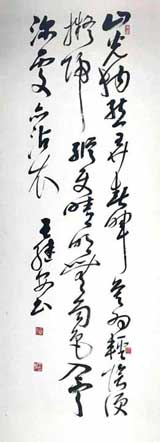 山光物態弄春暉莫為輕陰便
擬歸縱使晴明無雨色入雲
深處亦沾衣 王